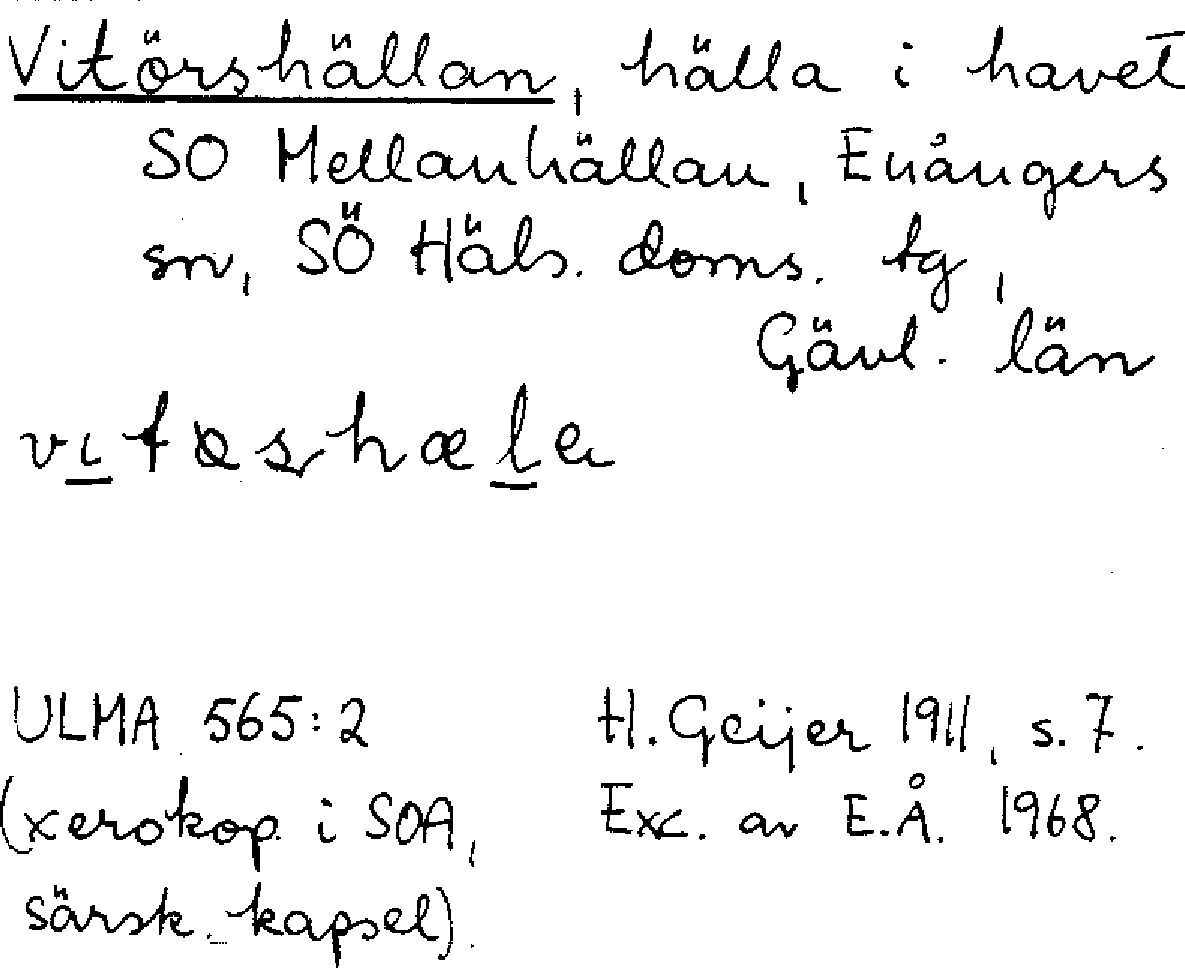 Vitörshällan, hälla i havet
SO Mellanhällan, Enångers
sn, SÖ Häls. doms. tg,
Gävl. län
ULMA 565:2
(xerokop i SOA,
särsk. kapsel).
H. Geijer 1911, s. 7.
Exc. av E.Å. 1968.